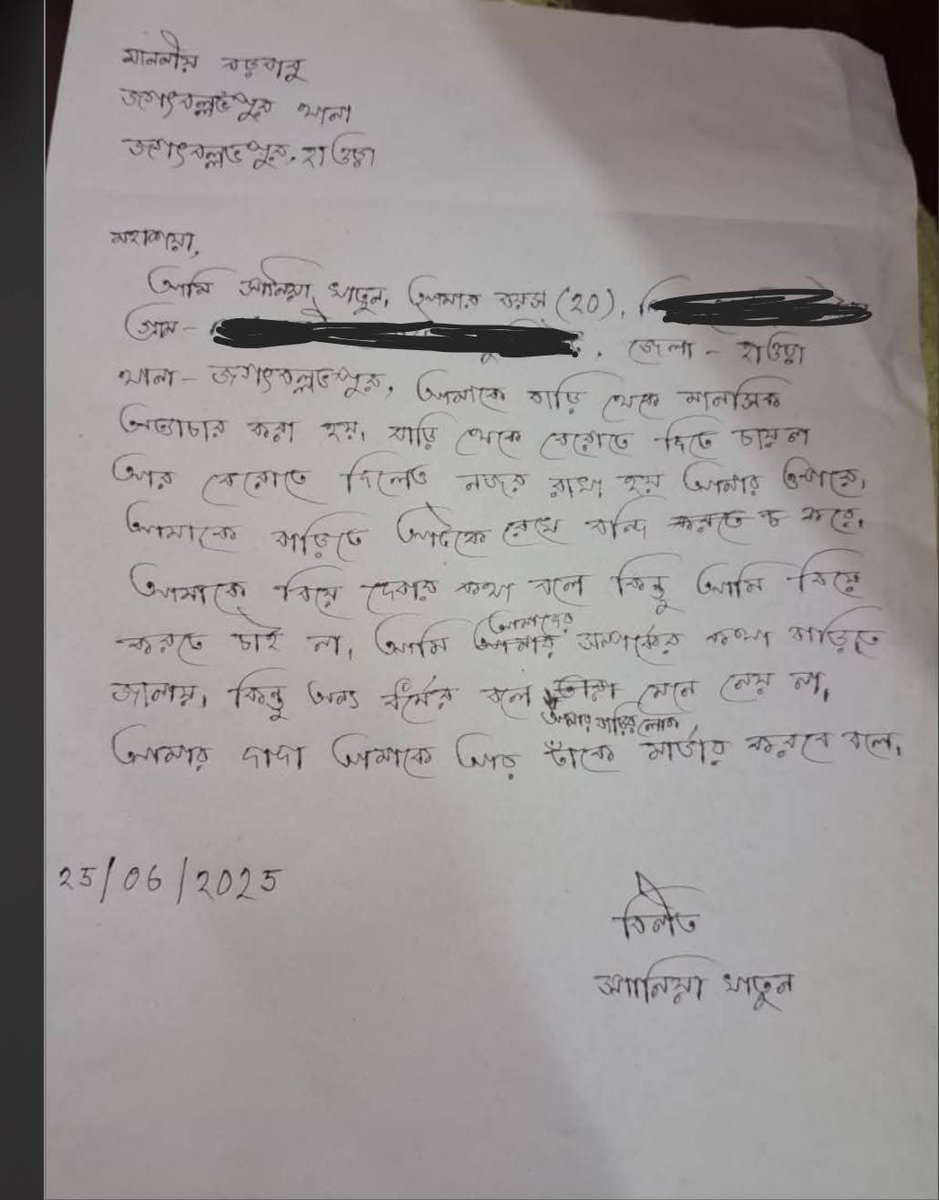 মাননীয় বড়বাবু
জগৎবল্লভপুর থানা
জগৎবল্লভপুর, হাওড়া
মহাশয়,
আমি সানিয়া খাতুন, আমার বয়স (20),
গ্রাম- , জেলা - হাওড়া
থানা- জগৎবল্লভপুর, আমাকে বাড়ি থেকে মানসিক
অত্যাচার করা হয়, বাড়ি থেকে বেরোতে দিতে চায়না
আর বেরোতে দিলেও নজর রাখা হয় আমার ওপরে,
আমাকে বাড়িতে আটকে রেখে বন্দি করে,
আমাকে বিয়ে দেবার কথা বলে কিন্তু আমি বিয়ে
করতে চাই না, আমি আমাদের সম্পর্কের কথা বাড়িতে
জানায়, কিন্তু অন্য ধর্মের বলে আমার বাড়ির লোক মেনে নেয় না,
আমার দাদা আমাকে আর তাকে মার্ডার করবে বলে,
25/06/2025
বিনীত
সানিয়া খাতুন